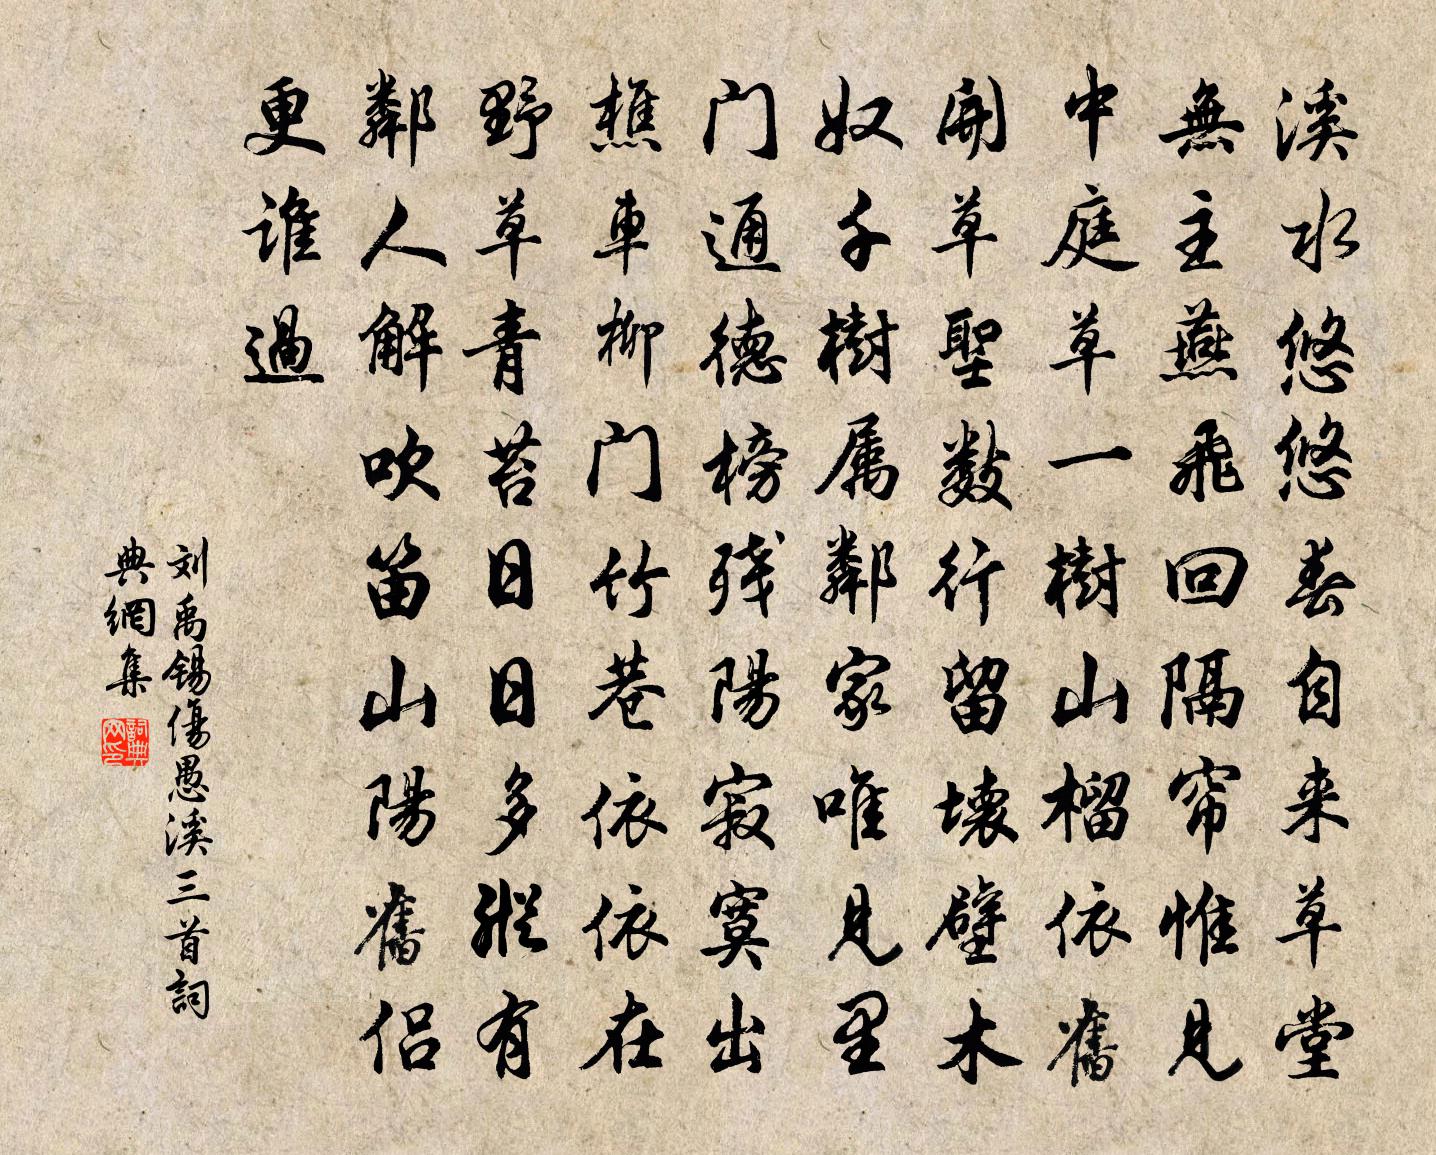 溪水悠悠春自来草堂
無主燕飛回隔帘惟見
中庭草一樹山榴依舊
開草聖數行留壞壁木
奴千樹属鄰家唯見里
门通德榜残陽寂寞出
樵車柳门竹巷依依在
野草青苔日日多縱有
鄰人解吹笛山陽舊侶
更谁過
刘禹锡傷愚溪三首詞
典網集
詞典网印